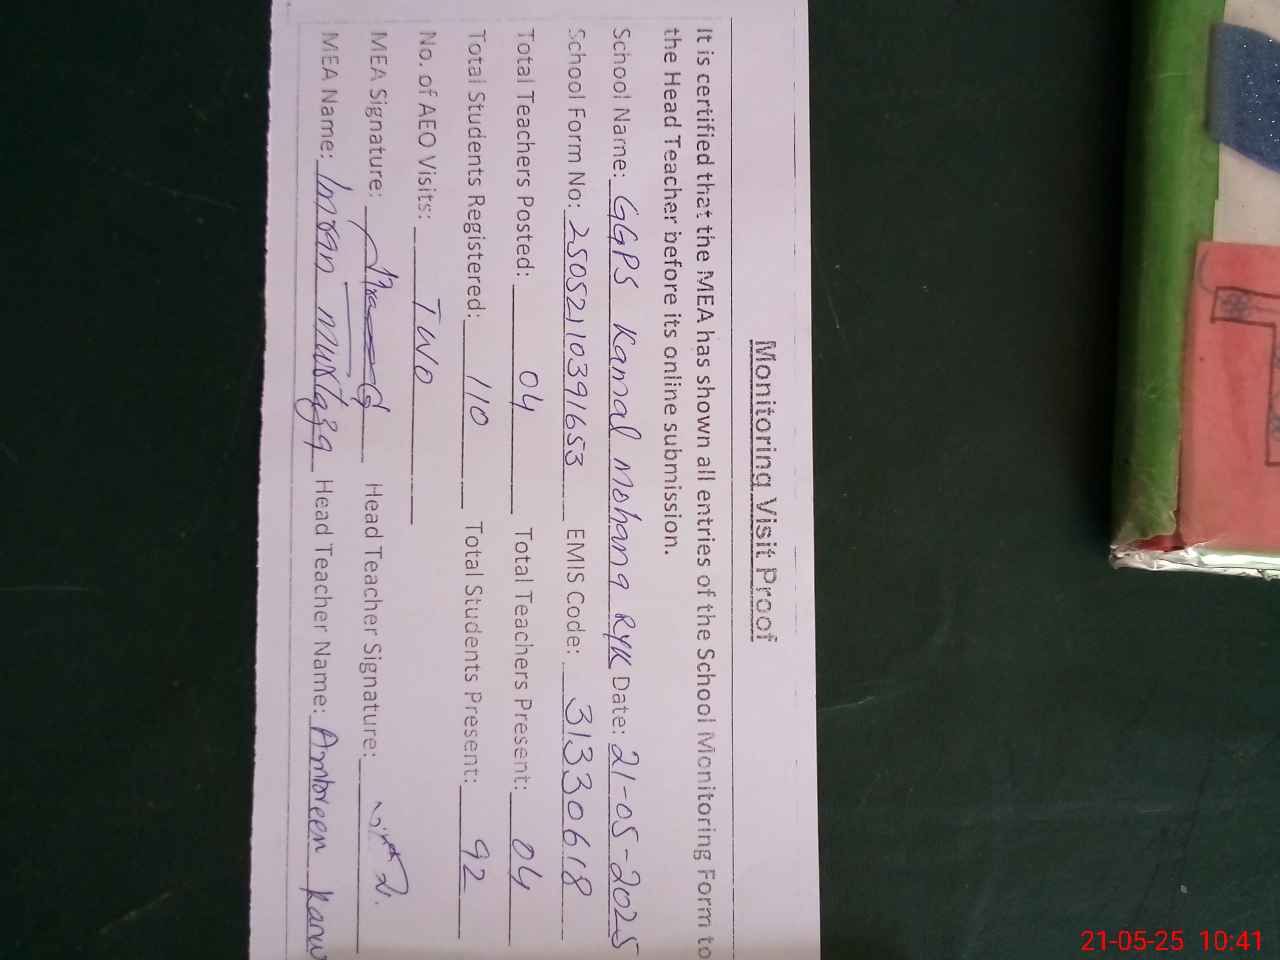 Monitoring Visit Proof
It is certified that the MEA has shown all entries of the School Monitoring Form to
the Head Teacher before its online submission.
School Name: GGPS Kamal Mohana RYK Date: 21-05-2025
School Form No: 25052110391653 EMIS Code: 31330618
Total Teachers Posted: 04 Total Teachers Present: 04
Total Students Registered: 110 Total Students Present: 92
No. of AEO Visits: Two
MEA Signature: Head Teacher Signature:
MEA Name: Imran Mustafa Head Teacher Name: Ambreen
21-05-25 10:41